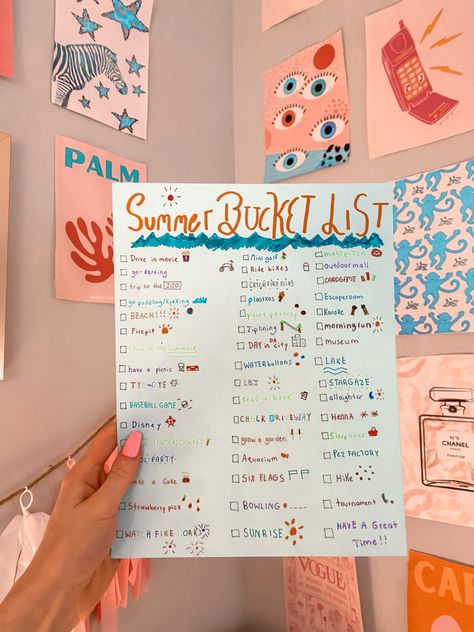 PALM
Summer BUCKET LIST
Drive in movie
go-karting
trip to the ZOO
BEACH!!!
Firepit
Chill in the hammock
have a picnic
TYE-DYE
BASEBALL GAME
Disney
FARMERS MARKET
POOL PARTY
Bake a Cake
Strawberry pick
WATCH FIRE WORKS
Mini golf
Ride bikes
CATCH FIRE FLIES
paint pottery
Ziplining
DAY in da City
WATER balloons
LBI
read a book
CHALK DRIVEWAY
grow a garden
Aquarium
SIX FLAGS
BOWLING
SUNRISE
make pizza
Outdoor mall
CARDGAME
Escaperoom
Karoke
morning run
museum
LAKE
STARGAZE
allnighter
Henna
Sleepover
PEZ FACTORY
Hike
tournament
HAVE A Great
Time!!
N°5
CHANEL
PARFUM
VOGUE
CAP